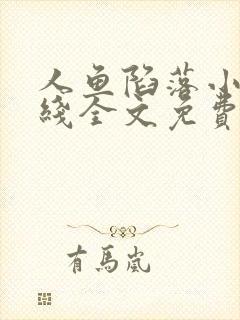 人鱼陷落小
线全文免費
有馬嵐